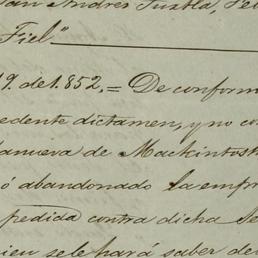 San Andres Tuxtla, Fe
Fiel"
19. de 1.852,= De conform
cedente dictamen, y no co
lanueva de Mackintosh
ó abandonado la empr
pedida contra dicha Se
bien se le hará saber de